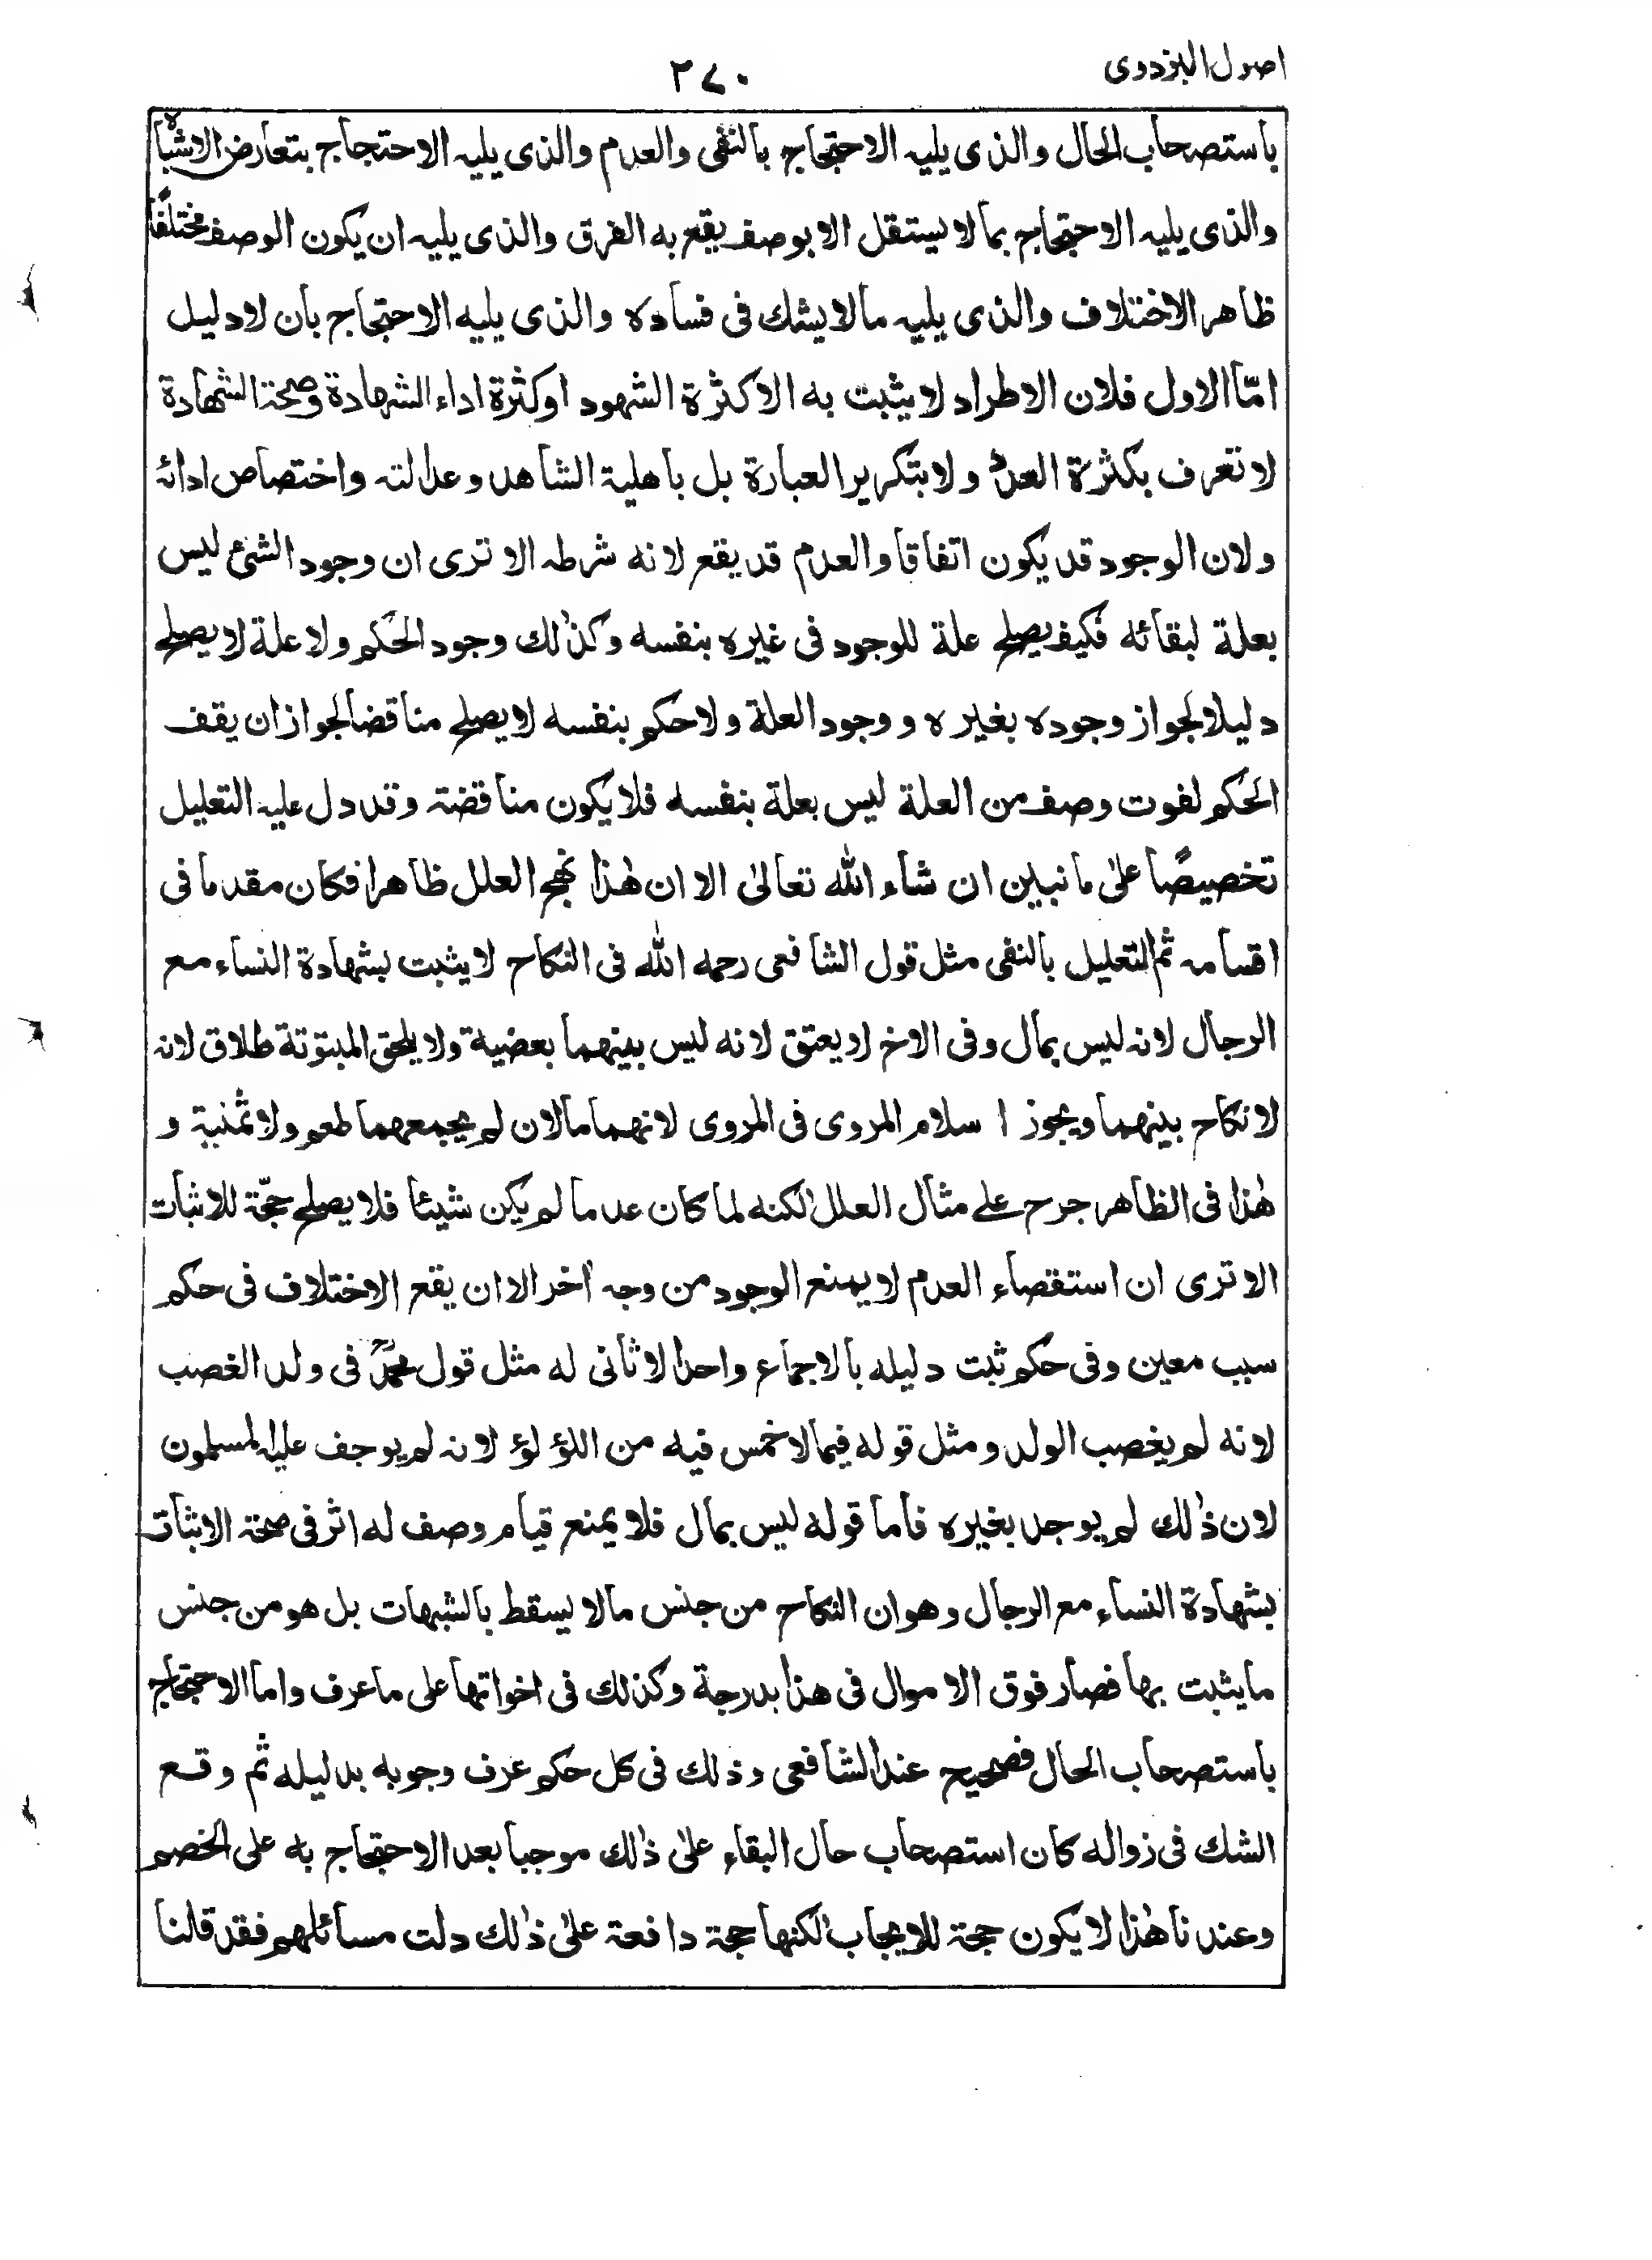 اصول البزدوى
٢٧٠
باستصحاب الحال والذى يليه الاحتجاج بالنفى والعدم والذى يليه الاحتجاج بتعارض الاشباه
والذى يليه الاحتجاج بما لا يستقل الا بوصف يقع به الفرق والذى يليه ان يكون الوصف مختلفًا
ظاهر الاختلاف والذى يليه ما لا يشك فى فساده والذى يليه الاحتجاج بان لا دليل
امّا الاول فلان الاطراد لا يثبت به الا كثرة الشهود او كثرة اداء الشهادة وصحة الشهادة
لا تعرف بكثرة العدد ولا بتكرير العبارة بل باهلية الشاهد وعدالته واختصاص ادائه
ولان الوجود قد يكون اتفاقا والعدم قد يقع لانه شرطه الا ترى ان وجود الشئ ليس
بعلة لبقائه فكيف يصلح علة للوجود فى غيره بنفسه وكذٰلك وجود الحكم ولا علة لا يصلح
دليلا لجواز وجوده بغيره و وجود العلة ولا حكم بنفسه لا يصلح مناقضا لجواز ان يقف
الحكم لفوت وصف من العلة ليس بعلة بنفسه فلا يكون مناقضة وقد دل عليه التعليل
تخصيصًا علىٰ ما نبين ان شاء الله تعالىٰ الا ان هٰذا نهج العلل ظاهرا فكان مقدما فى
اقسامه ثم التعليل بالنفى مثل قول الشافعى رحمه الله فى النكاح لا يثبت بشهادة النساء مع
الرجال لانه ليس بمال وفى الاخ لا يعتق لانه ليس بينهما بعضية ولا يلحق المبتوتة طلاق لانه
لا نكاح بينهما ويجوز ا سلام المروى فى المروى لانهما مالان لم يجمعهما طعم ولا ثمنية و
هٰذا فى الظاهر جرح على مثال العلل لٰكنه لما كان عدما لم يكن شيئا فلا يصلح حجّة للاثبات
الا ترى ان استقصاء العدم لا يمنع الوجود من وجه اٰخر الا ان يقع الاختلاف فى حكم
سبب معين وفى حكم ثبت دليله بالاجماع واحدا لا ثانى له مثل قول محمدؒ فى ولد الغصب
لانه لم يغصب الولد ومثل قوله فيما لا خمس فيه من اللؤلؤ لانه لم يوجف عليه المسلمون
لان ذٰلك لم يوجد بغيره فاما قوله ليس بمال فلا يمنع قيام وصف له اثر فى صحة الاثبات
بشهادة النساء مع الرجال وهو ان النكاح من جنس ما لا يسقط بالشبهات بل هو من جنس
ما يثبت بها فصار فوق الاموال فى هذا بدرجة وكذلك فى اخواتها على ما عرف واما الاحتجاج
باستصحاب الحال فصحيح عند الشافعى وذلك فى كل حكم عرف وجوبه بدليله ثم وقع
الشك فى زواله كان استصحاب حال البقاء علىٰ ذٰلك موجبا بعد الاحتجاج به على الخصم
وعندنا هٰذا لا يكون حجة للايجاب لٰكنها حجة دافعة علىٰ ذٰلك دلت مسائلهم فقد قلنا